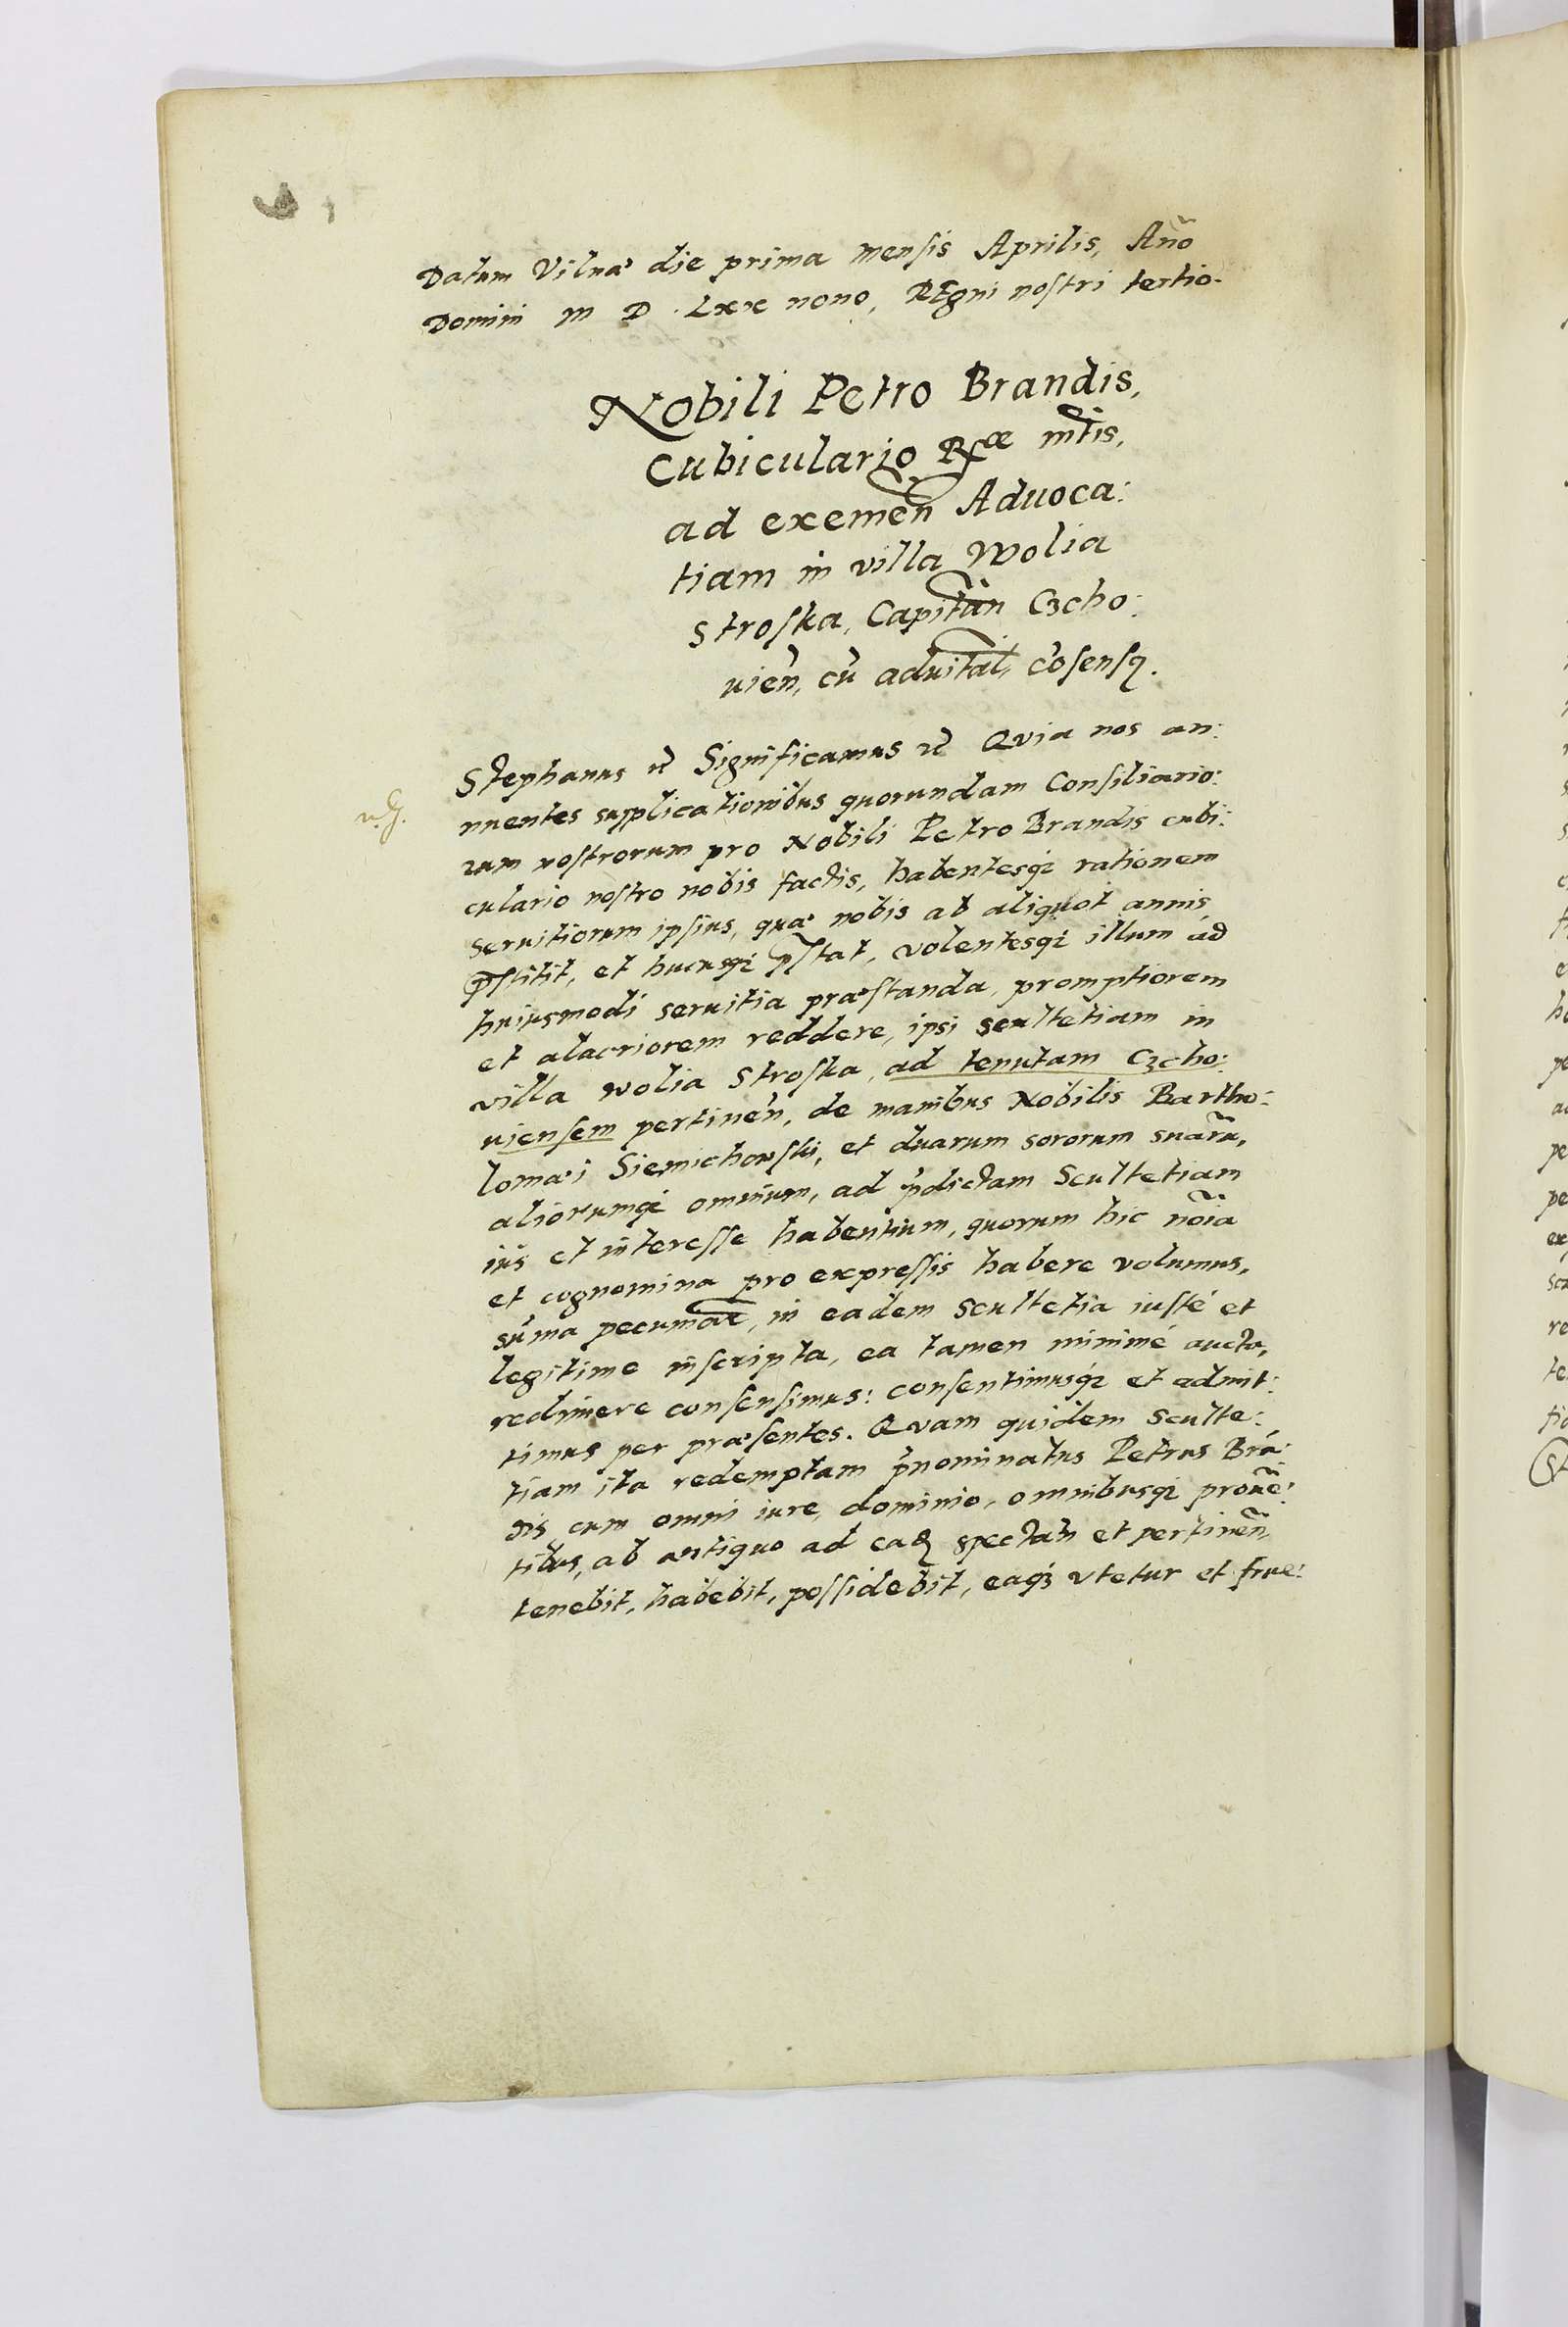 Datum Vilnæ die prima mensis Aprilis, Año
Domini M D Lxx nono, REgni nostri tertio.
Nobili Petro Brandis,
Cubiculario Rᵒᵉ mtis,
ad exemen̄ Aduoca:
tiam in villa Wolia
Stroska, Capitān Czcho:
uien̄, cū aduital, cōsensq.
Stephanus &c Significamus &c Qvia nos an:
nuentes supplicationibus quorundam Consiliario:
rum nostrorum pro Nobili Petro Brandis cubi:
culario nostro nobis factis, habentesq; rationem
seruitiorum ipsius, quæ nobis ab aliquot annis
p̄stitit, et hucusq; p̄stat, volentesq; illum ad
huiusmodi seruitia præstanda, promptiorem
et alacriorem reddere, ipsi scultetiam in
villa Wolia Stroska, ad tenutam Czcho:
uiensem pertinen̄, de manibus Nobilis Bartho:
lomæi Siemichowski, et duarum sororum suarū,
aliorumq; omnium, ad p̄dictam Scultetiam
ius et interesse habentium, quorum hic noĩa
et cognomina pro expressis habere volumus,
sūma pecuniar̄, in eadem Scultetia iusté et
legitime inscripta, ea tamen minimé aucta,
redimere consensimus: consentimusq; et admit:
timus per præsentes. Qvam quidem Sculte:
tiam ita redemptam p̄nominatus Petrus Brā:
dis cum omni iure, dominio, omnibusq; prouē:
tibus, ab antiquo ad eaq spectan̄ et pertinen̄,
tenebit, habebit, possidebit, eaq; vtetur et frue: